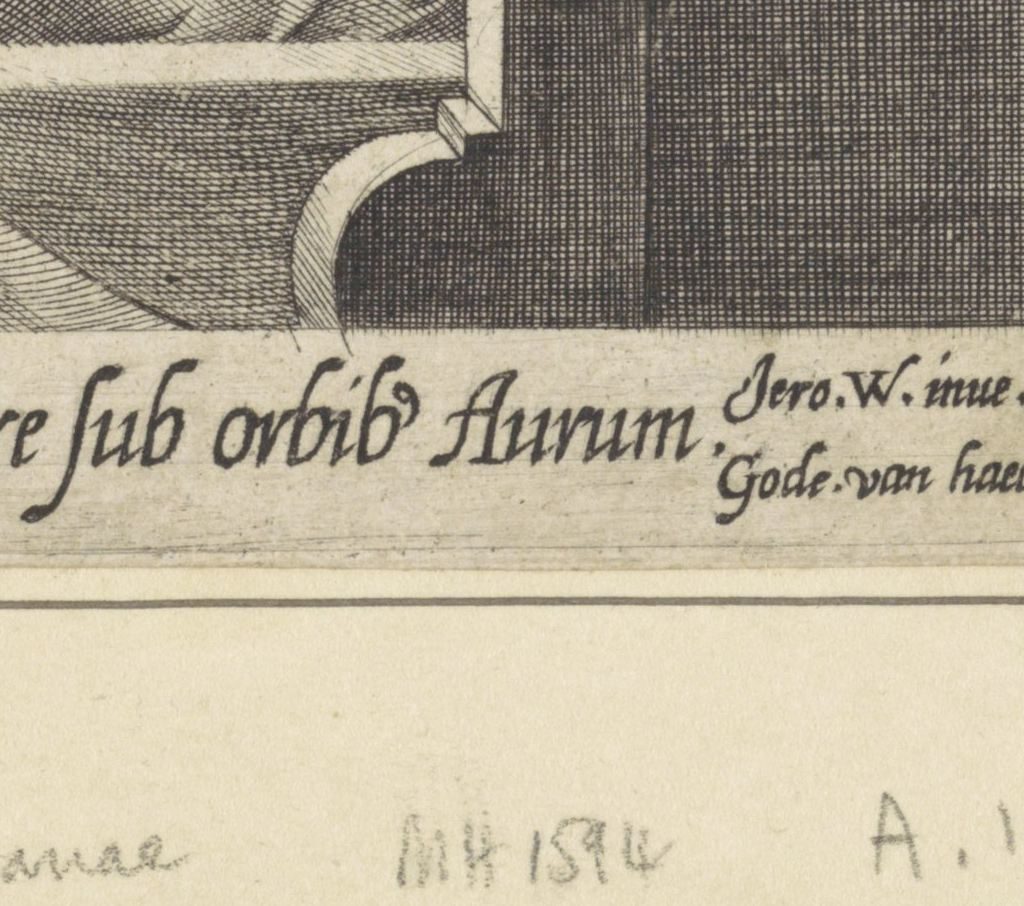 re ſub orbibꝰ Aurum.
Jero.W. inue.
Gode.van hae
MH 1594 A. 1